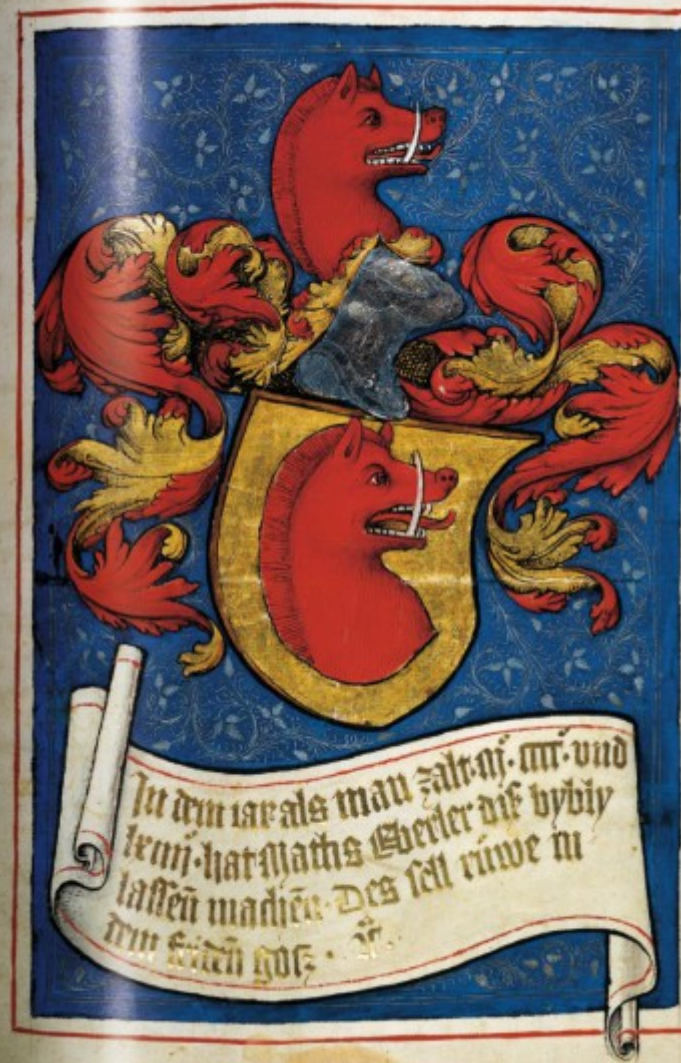 In dem iar als man zalt· M̊· cccc̊· vnd
lxiiij̊· hat Mathis Eberler diß bybly
lassen̄ machen̄· Des sell růwe in
dem friden̄ gotz ·